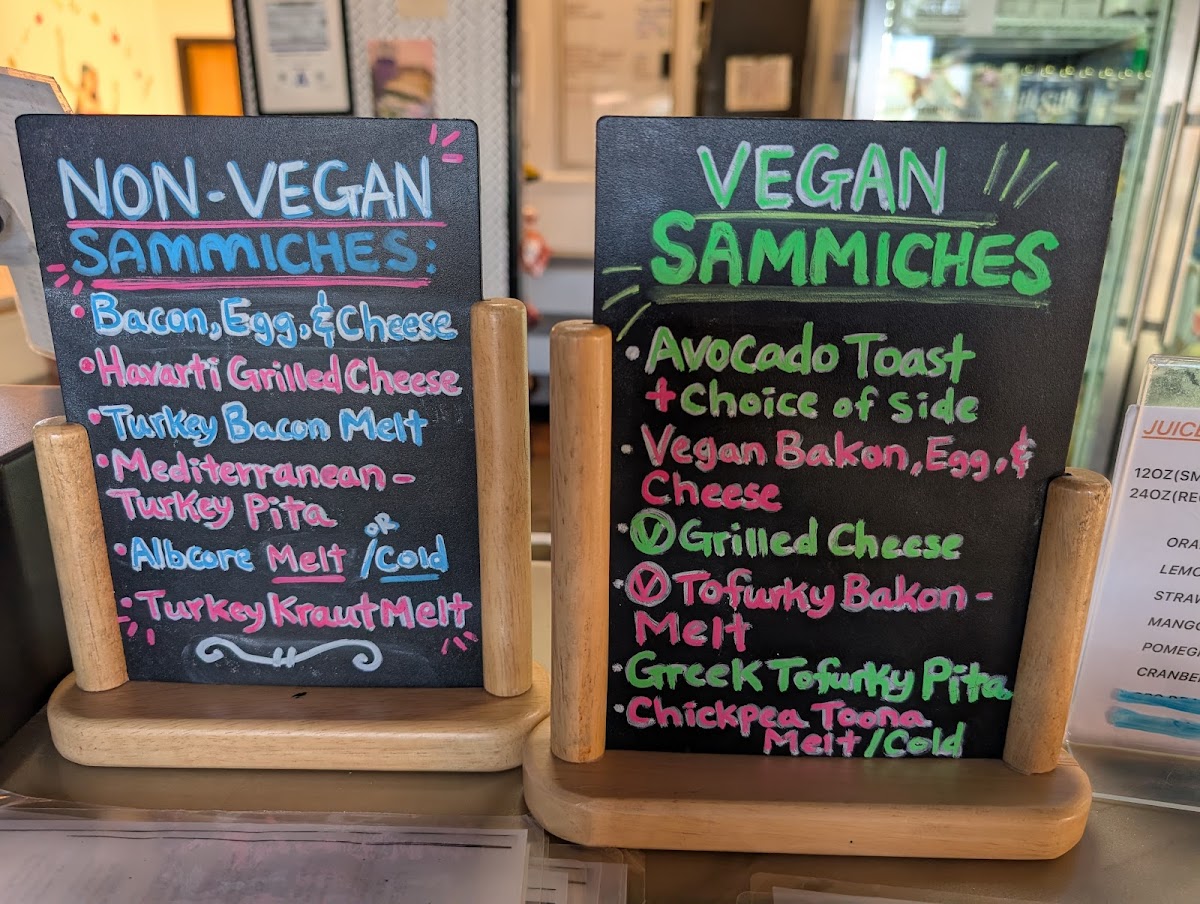 NON-VEGAN
SAMMICHES:
• Bacon, Egg, & Cheese
• Havarti Grilled Cheese
• Turkey Bacon Melt
• Mediterranean -
Turkey Pita
OR
• Albcore Melt / Cold
• Turkey Kraut Melt
VEGAN
SAMMICHES
• Avocado Toast
+ Choice of side
• Vegan Bakon, Egg, &
Cheese
• V Grilled Cheese
• V Tofurky Bakon -
Melt
• Greek Tofurky Pita
• Chickpea Toona
Melt / Cold
JUICE
12OZ(SM
24OZ(RE
ORA
LEMO
STRAW
MANGO
POMEG
CRANBE